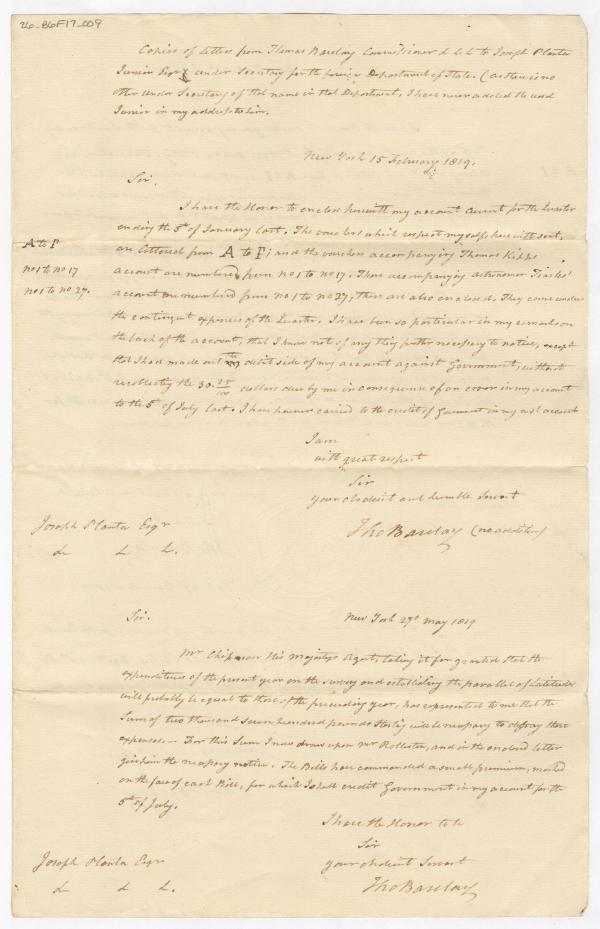 26-B6F17-009
Copies of letters from Thomas Barclay Commissioner &c &c to Joseph Planta
Junior Esqr under Secretary for the foreign Department of State. (as there is no
other under Secretary of that name in that Department, I have never added the word
Junior in my address to him.
New York 15 February 1819.
Sir.
I have the Honor to enclose herewith my account current for the Quarter
ending the 5th of January last. The vouchers which respect myself, herewith sent,
are lettered from A to F; and the vouchers accompanying Thomas Kipps
account are numbered from no 1 to no 17. Those accompanying astronomer Tiarks'
account are numbered from no 1 to no 27, these are also enclosed. They come under
the contingent expences of the Quarter. I have been so particular in my remarks on
the back of the account, that I know not of any thing further necessary to notice, except
that I had made out the debit side of my account against Government, without
recollecting the 30. dollars due by me in consequence of an error in my account
to the 5th of July last. I have however carried to the credit of Government in my next account
A to F
no 1 to no 17
no 1 to no 27.
I am
with great respect
Sir
your obedient and humble Servant
Tho Barclay
Joseph Planta Esqr
&c &c &c.
New York 27th May 1819
Sir.
Mr Chipman His Majestys Agent, taking it for granted that the
expenditures of the present year on the survey and establishing the parallel of Latitude
will probably be equal to those of the preceeding year, has represented to me that the
Sum of two thousand seven hundred pounds Sterling will be necessary to defray those
expenses. – For this Sum I now draw upon Mr Rolleston, and in the enclosed letter
give him the necessary notice. The Bills have commanded a small premium, marked
on the face of each Bill, for which I shall credit Government in my account for the
5th of July.
I have the Honor to be
Sir
your obedient Servant
Tho Barclay
Joseph Planta Esqr
&c &c &c.